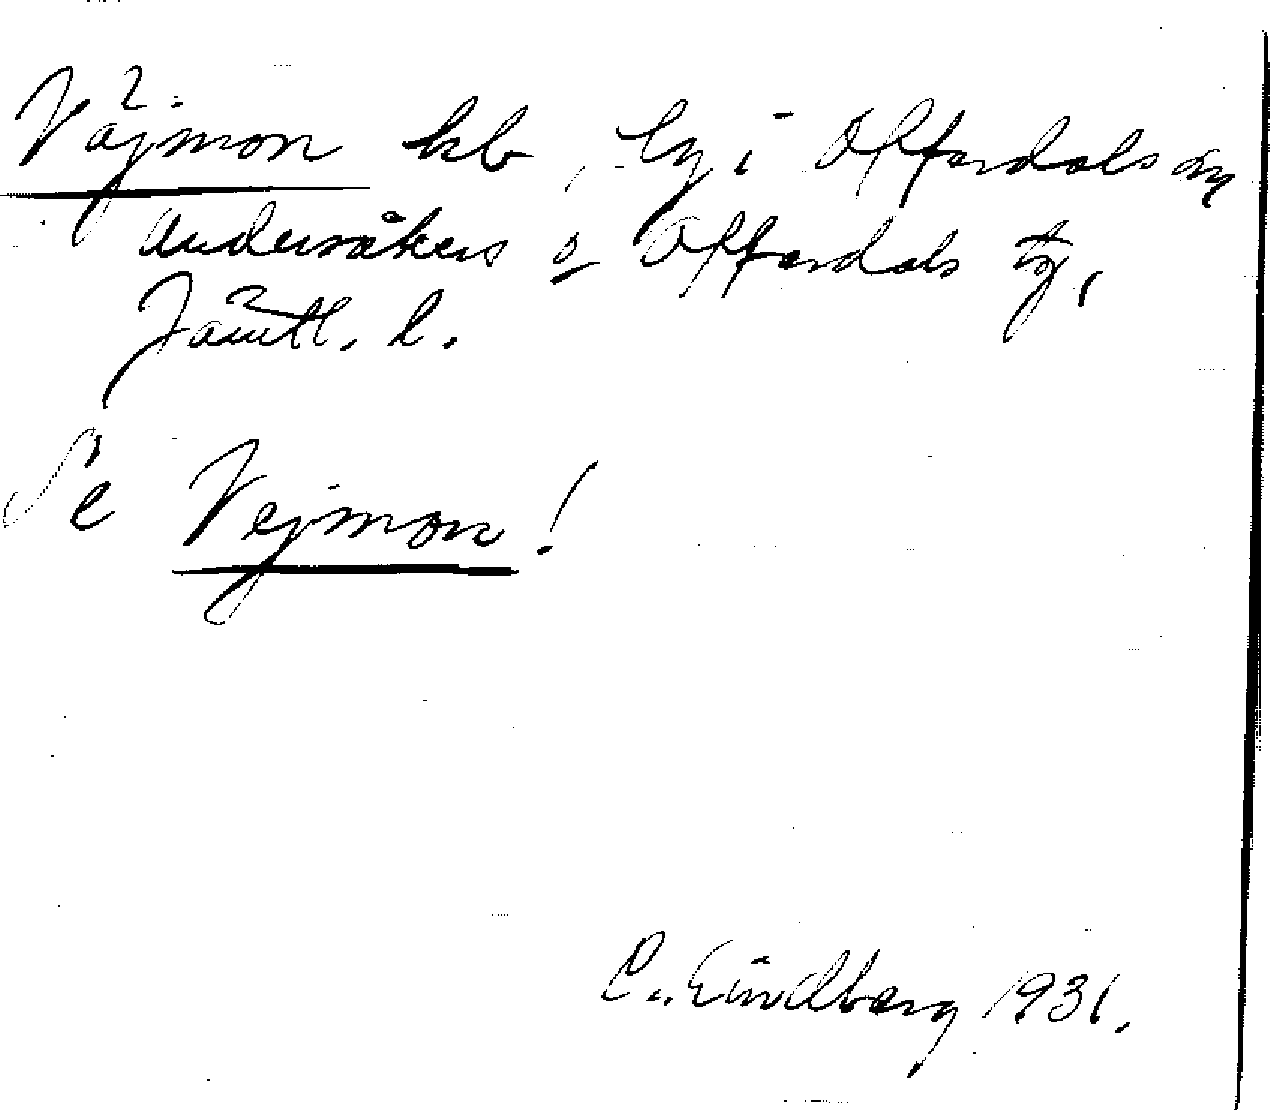 Väjmon kb, by i Offerdals sn
Undersåkers o Offerdals tg,
Jämtl. l.
Se Vejmon!
C. Lindberg 1931.